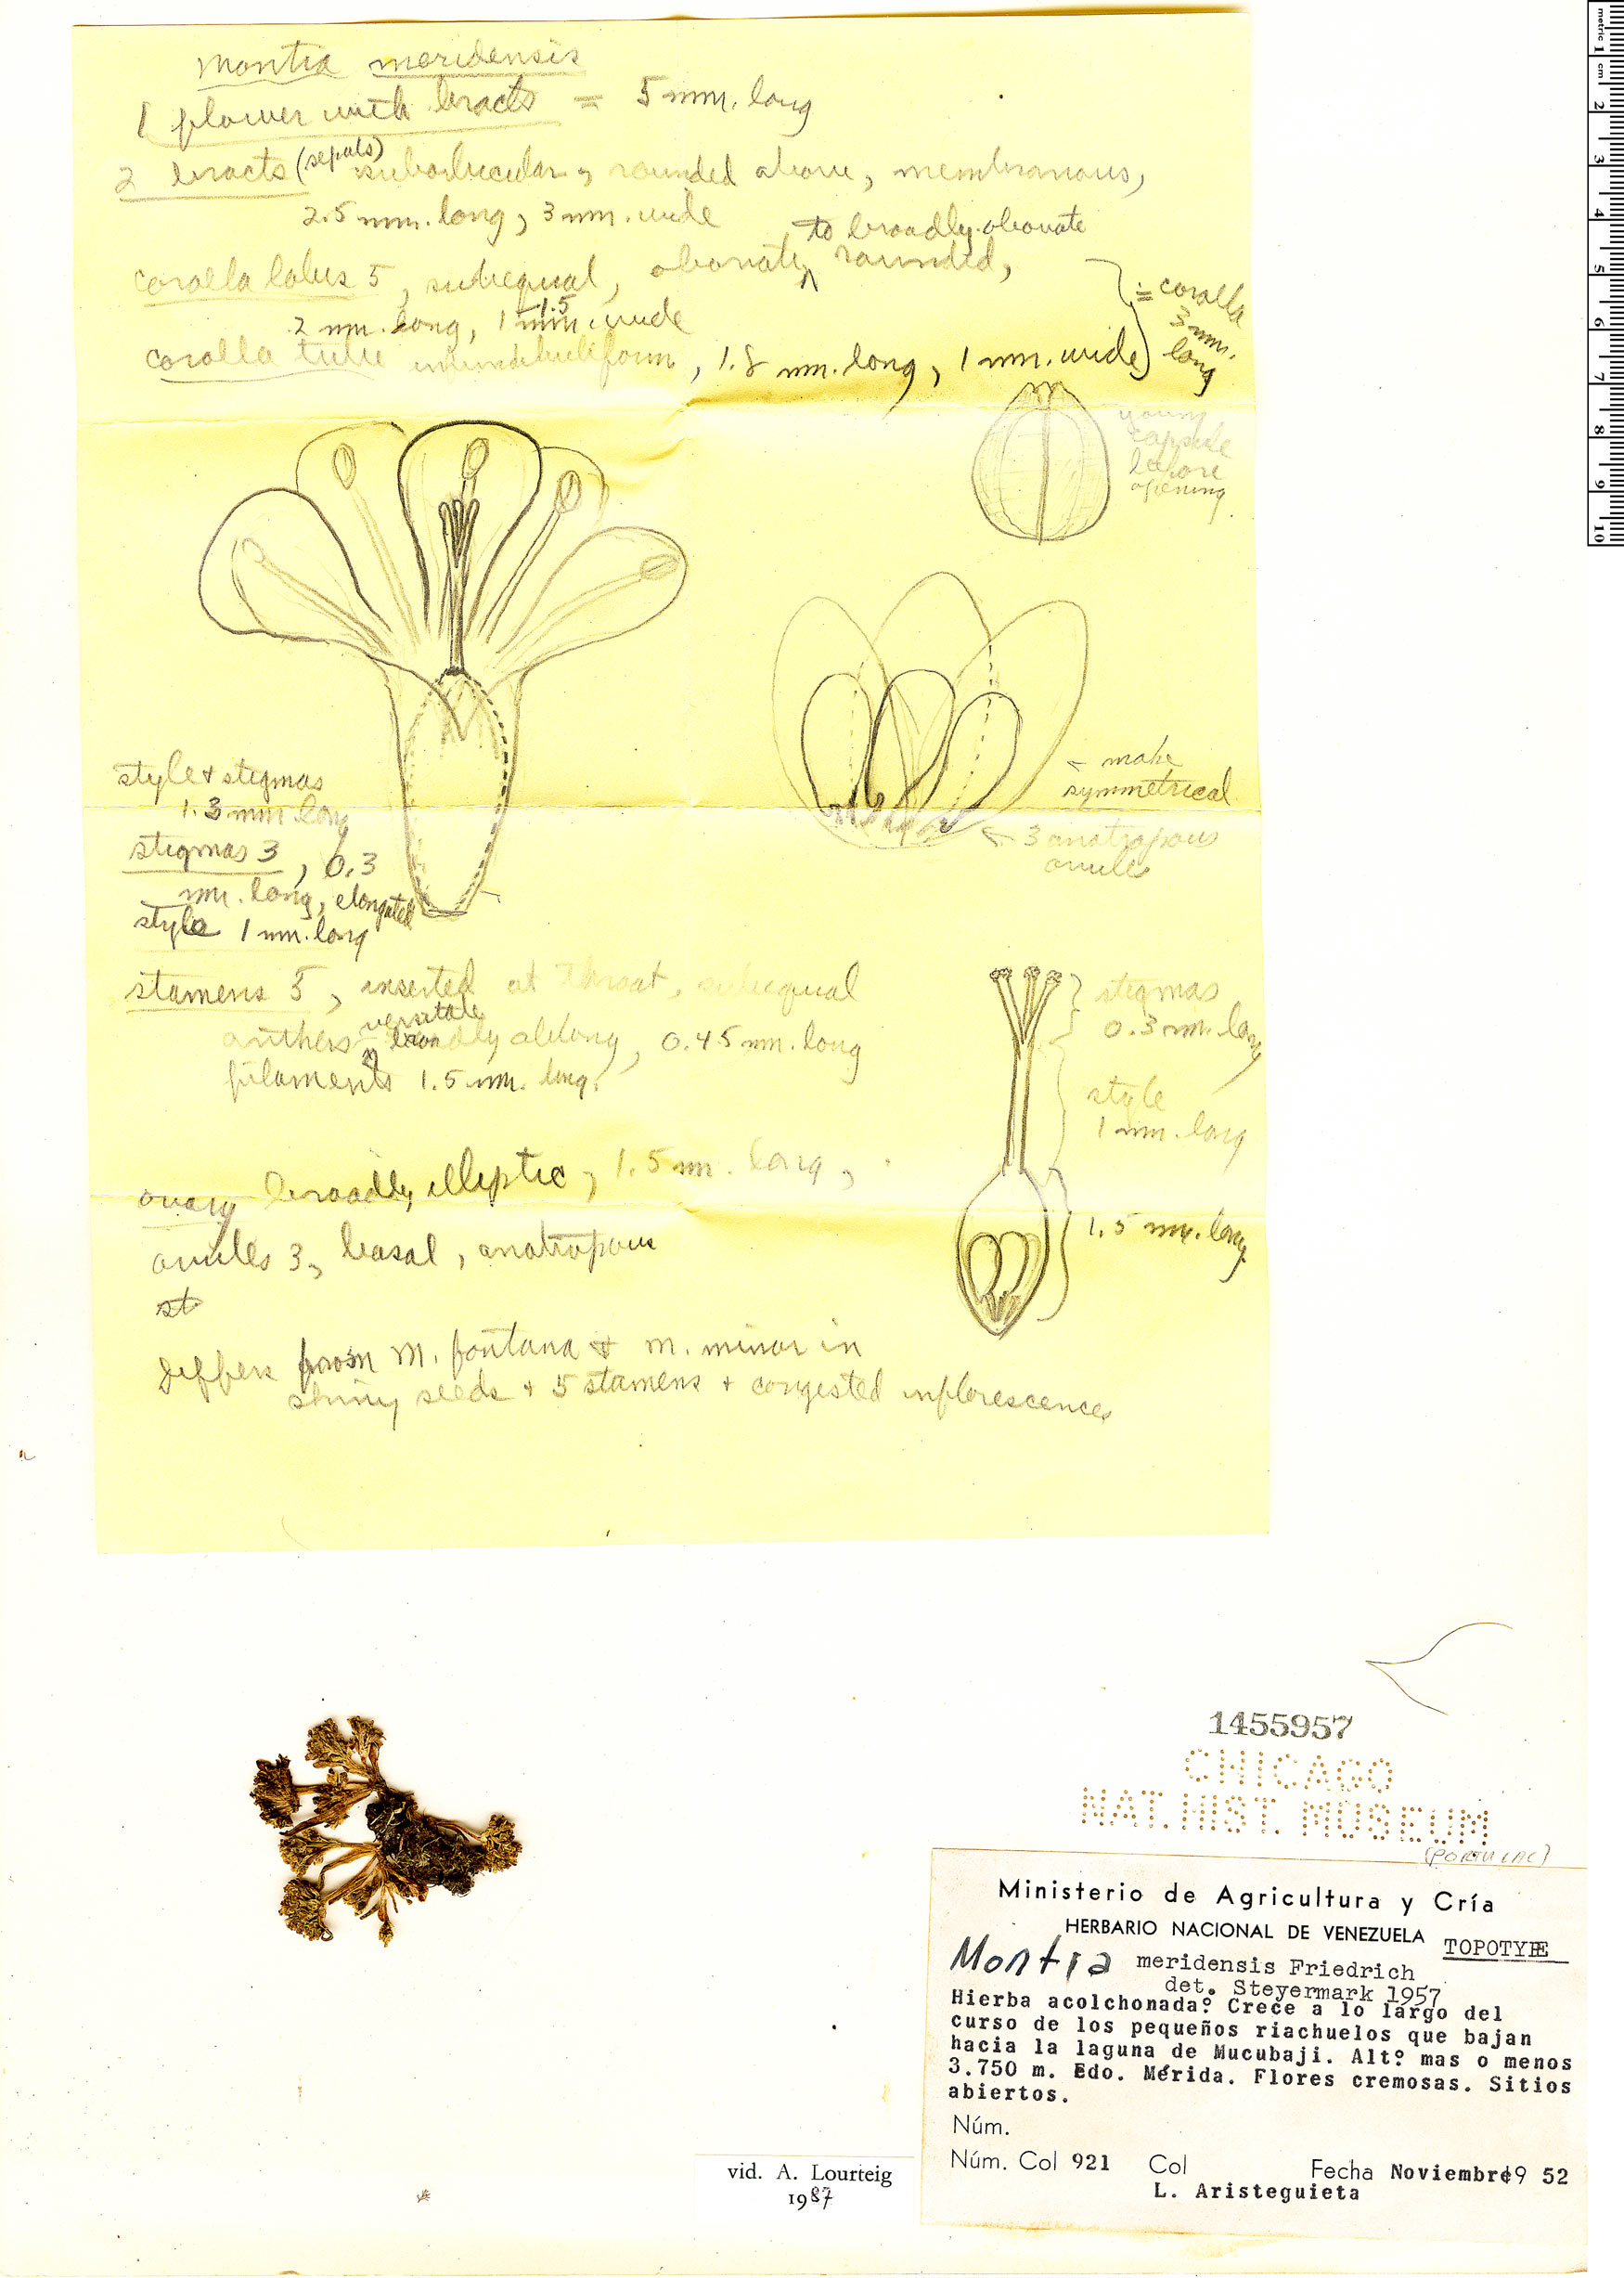 Montia meridensis
1 flower with bracts = 5 mm. long
2 bracts (sepals) suborbicular, rounded above, membranous,
2.5 mm. long, 3 mm. wide
to broadly obovate
corolla lobes 5, subequal, obovate, rounded,
2 mm. long, 1 mm. wide
1.5
corolla tube infundibuliform, 1.8 mm. long, 1 mm. wide
= corolla
3 mm.
long
young
capsule
before
opening
make
symmetrical
3 anatropous
ovules
style + stigmas
1.3 mm. long
stigmas 3, 0.3
mm. long, elongated
style 1 mm. long
stamens 5, inserted at throat, subequal
versatile
anthers broadly oblong, 0.45 mm. long
filaments 1.5 mm. long.
stigmas
0.3 mm. long
style
1 mm. long
1.5 mm. long
ovary broadly elliptic, 1.5 mm. long,
ovules 3, basal, anatropous
st
Differs from M. fontana & M. minor in
shiny seeds + 5 stamens + congested inflorescences
metric 1 cm 2 3 4 5 6 7 8 9 10
1455957
CHICAGO
NAT. HIST. MUSEUM
(PORTULAC)
Ministerio de Agricultura y Cría
HERBARIO NACIONAL DE VENEZUELA
TOPOTYPE
Montia meridensis Friedrich
det. Steyermark 1957
Hierba acolchonada. Crece a lo largo del
curso de los pequeños riachuelos que bajan
hacia la laguna de Mucubaji. Altº mas o menos
3.750 m. Edo. Mérida. Flores cremosas. Sitios
abiertos.
Núm.
Núm. Col 921 Col Fecha Noviembre 19 52
L. Aristeguieta
vid. A. Lourteig
1987